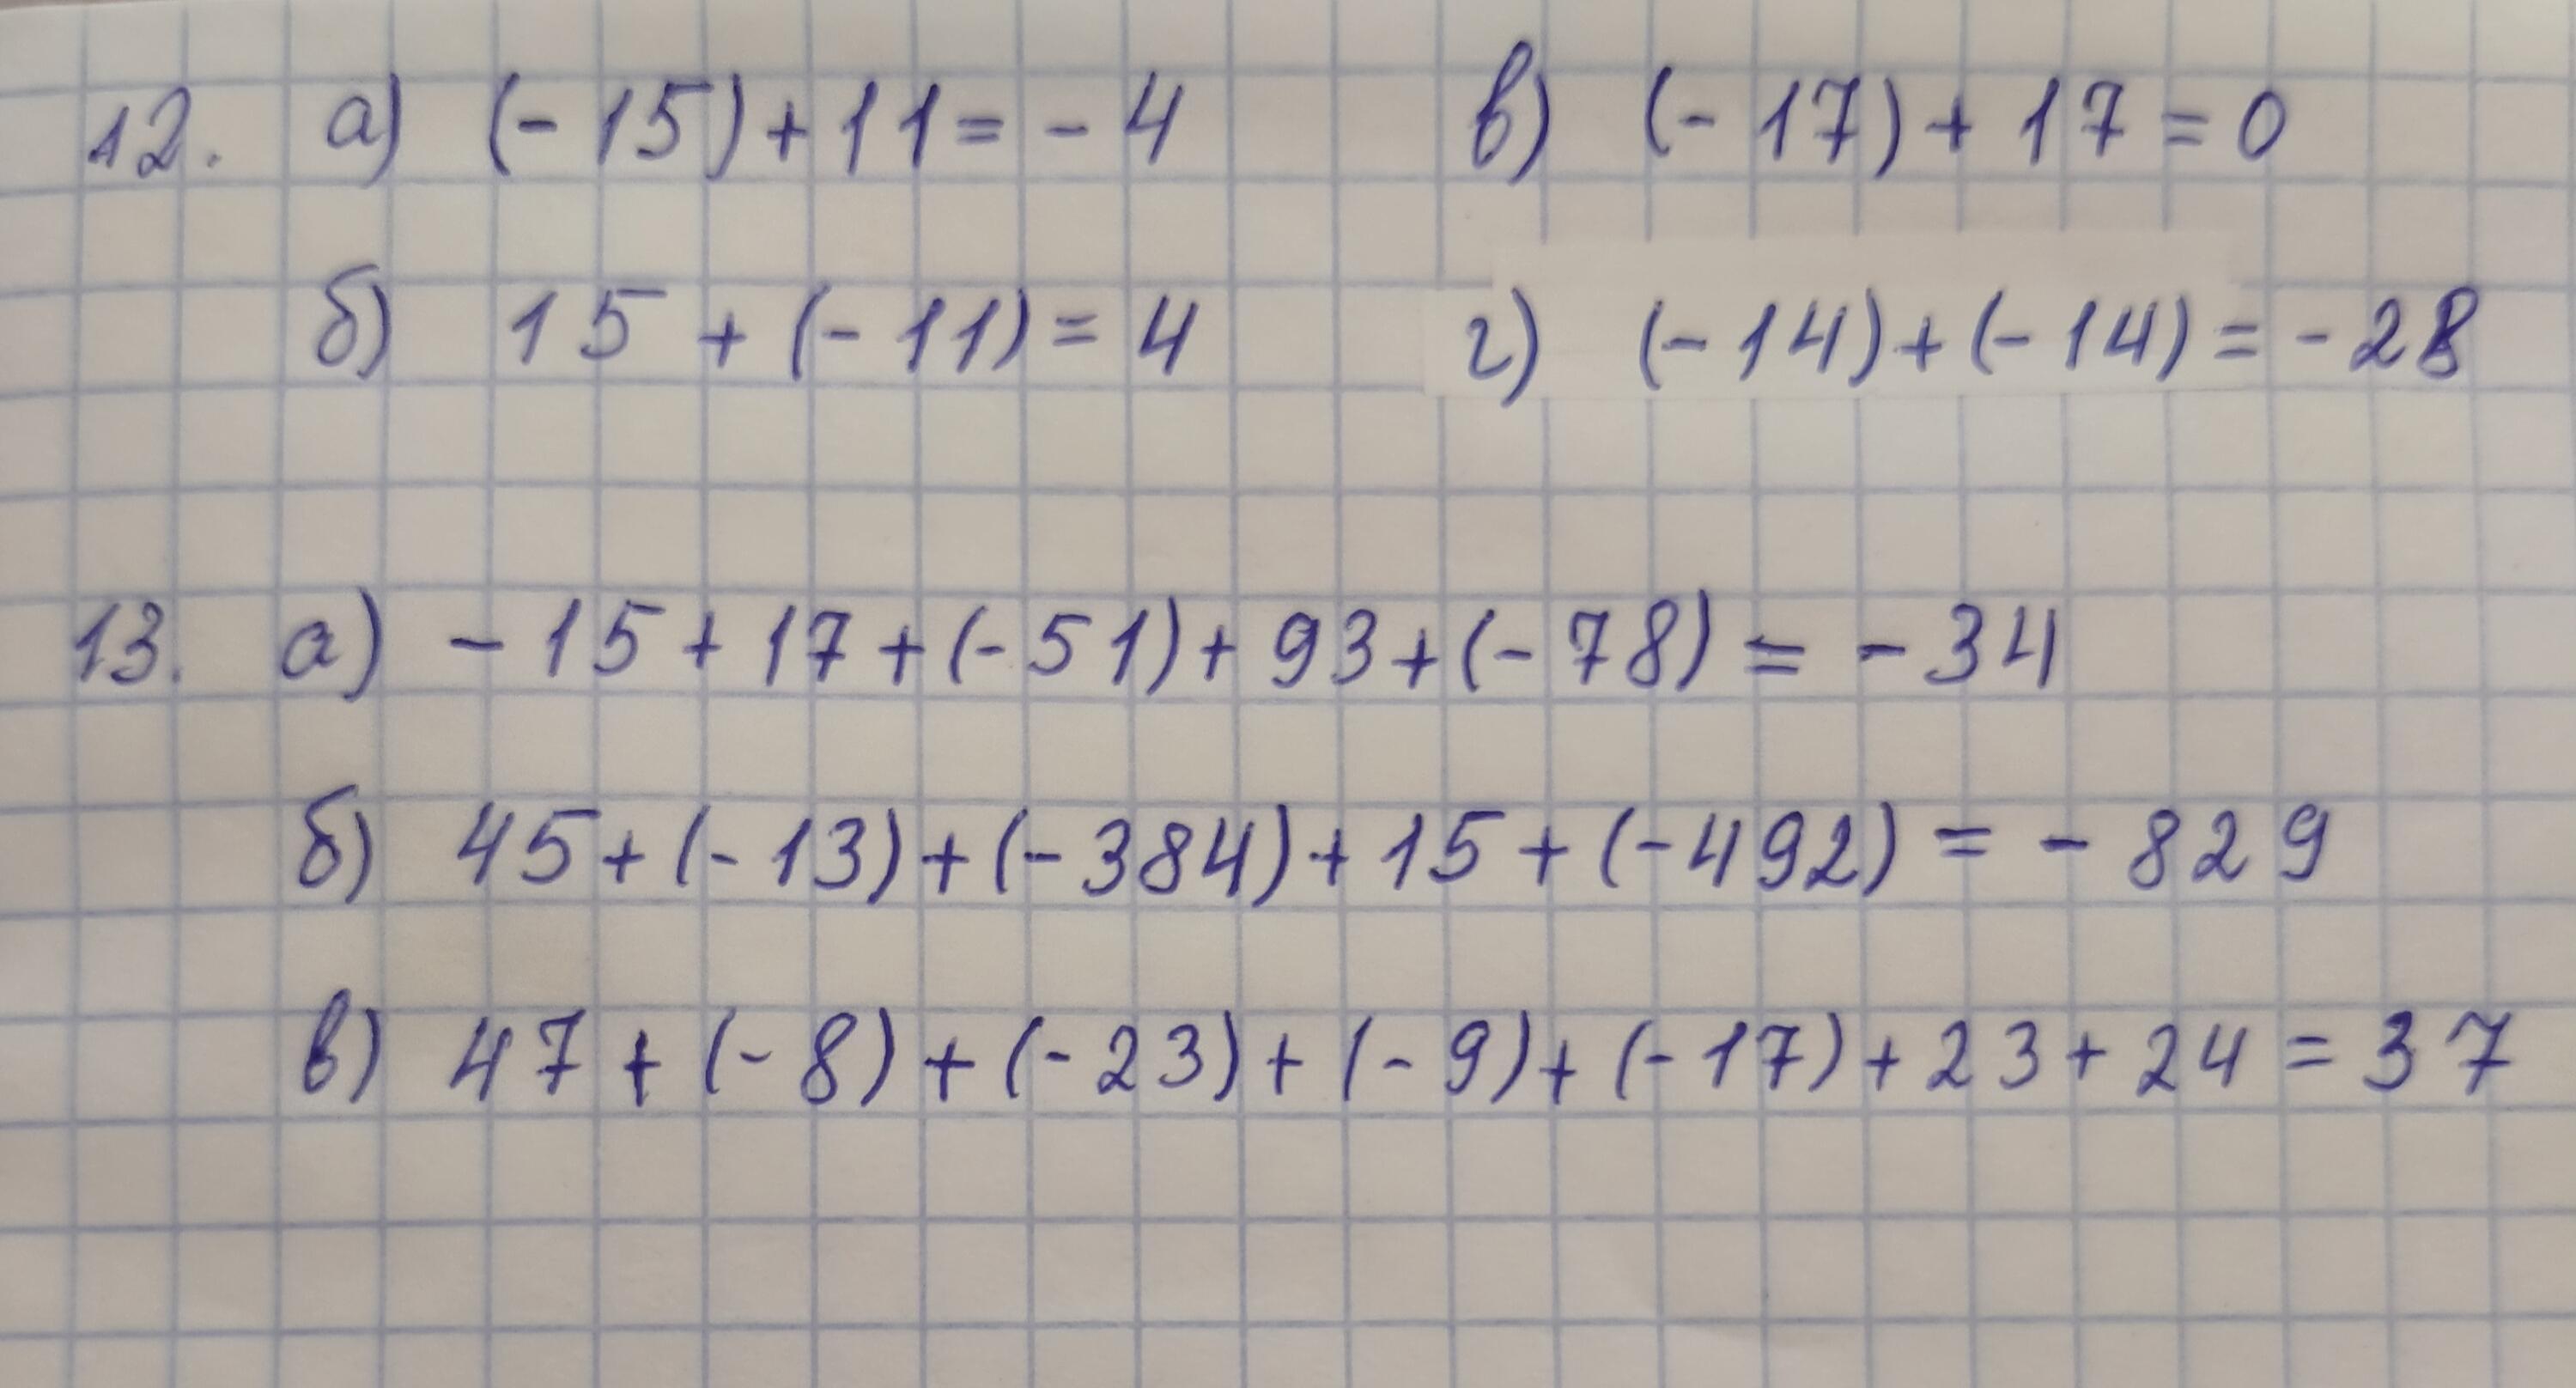 12. а) (-15)+11=-4 в) (-17)+17=0
б) 15+(-11)=4 г) (-14)+(-14)=-28
13. а) -15+17+(-51)+93+(-78)=-34
б) 45+(-13)+(-384)+15+(-492)=-829
в) 47+(-8)+(-23)+(-9)+(-17)+23+24=37